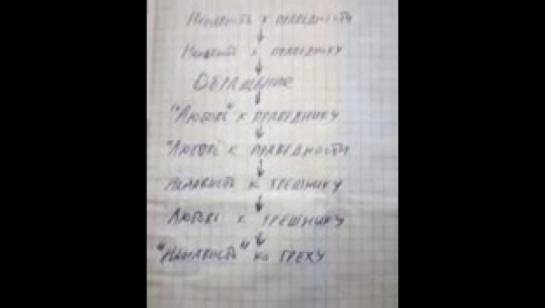 Ненависть к праведности
Ненависть к праведнику
Обращение
"Любовь" к праведнику
"Любовь к праведности
Ненависть к грешнику
Любовь к грешнику
"Ненависть" ко греху